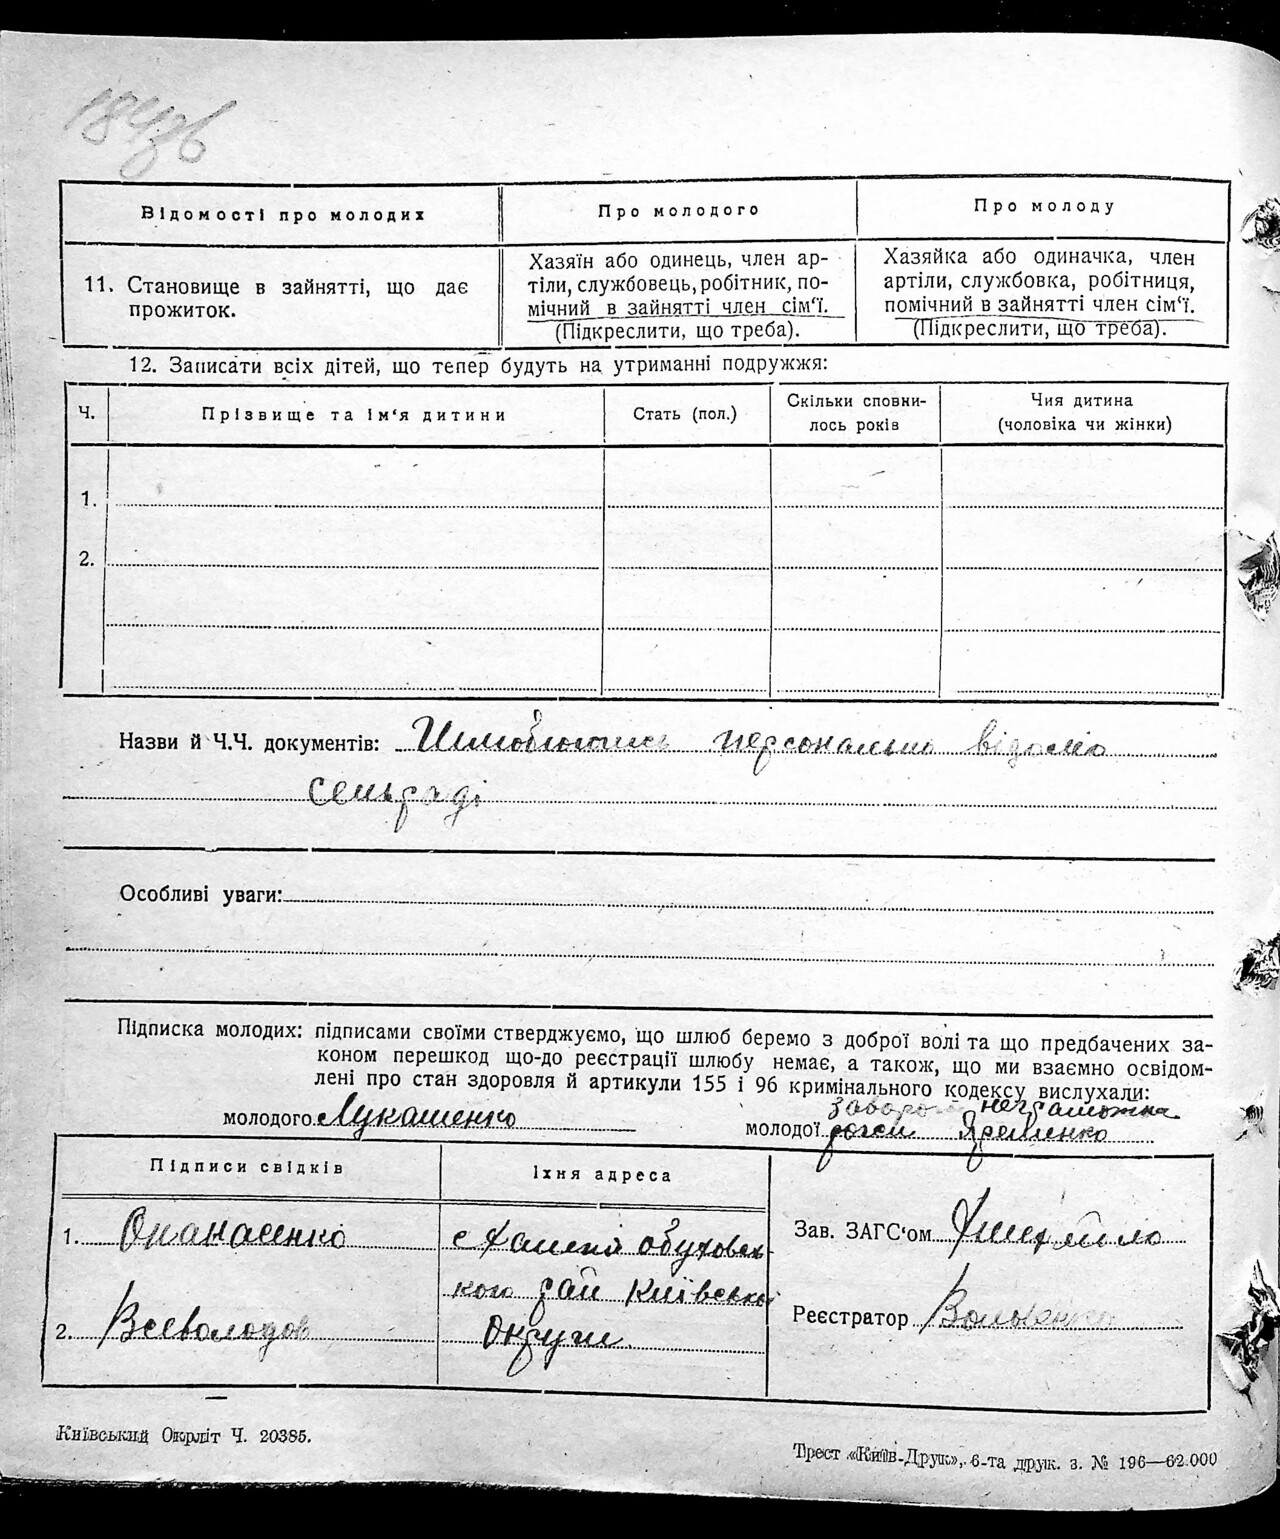 184зв
Відомості про молодих
Про молодого
Про молоду
11. Становище в зайнятті, що дає
прожиток.
Хазяїн або одинець, член ар-
тіли, службовець, робітник, по-
мічний в зайнятті член сім'ї.
(Підкреслити, що треба).
Хазяйка або одиначка, член
артіли, службовка, робітниця,
помічний в зайнятті член сім'ї.
(Підкреслити, що треба).
12. Записати всіх дітей, що тепер будуть на утриманні подружжя:
Ч.
Прізвище та ім'я дитини
Стать (пол.)
Скільки сповни-
лось років
Чия дитина
(чоловіка чи жінки)
1.
2.
Назви й Ч.Ч. документів: персонально відомі
сельраді
Особливі уваги:
Підписка молодих: підписами своїми стверджуємо, що шлюб беремо з доброї волі та що предбачених за-
коном перешкод що-до реєстрації шлюбу немає, а також, що ми взаємно освідом-
лені про стан здоровля й артикули 155 і 96 кримінального кодексу вислухали:
неграмотна
молодого Лукашенко
молодої Яременко
Підписи свідків
Їхня адреса
1. Опанасенко
с обуховсь-
кого рай Київської
2. Всеволодов
Округи.
Зав. ЗАГС'ом
Реєстратор
Київський Окрліт Ч. 20385.
Трест «Київ-Друк», 6-та друк. з. № 196—62.000